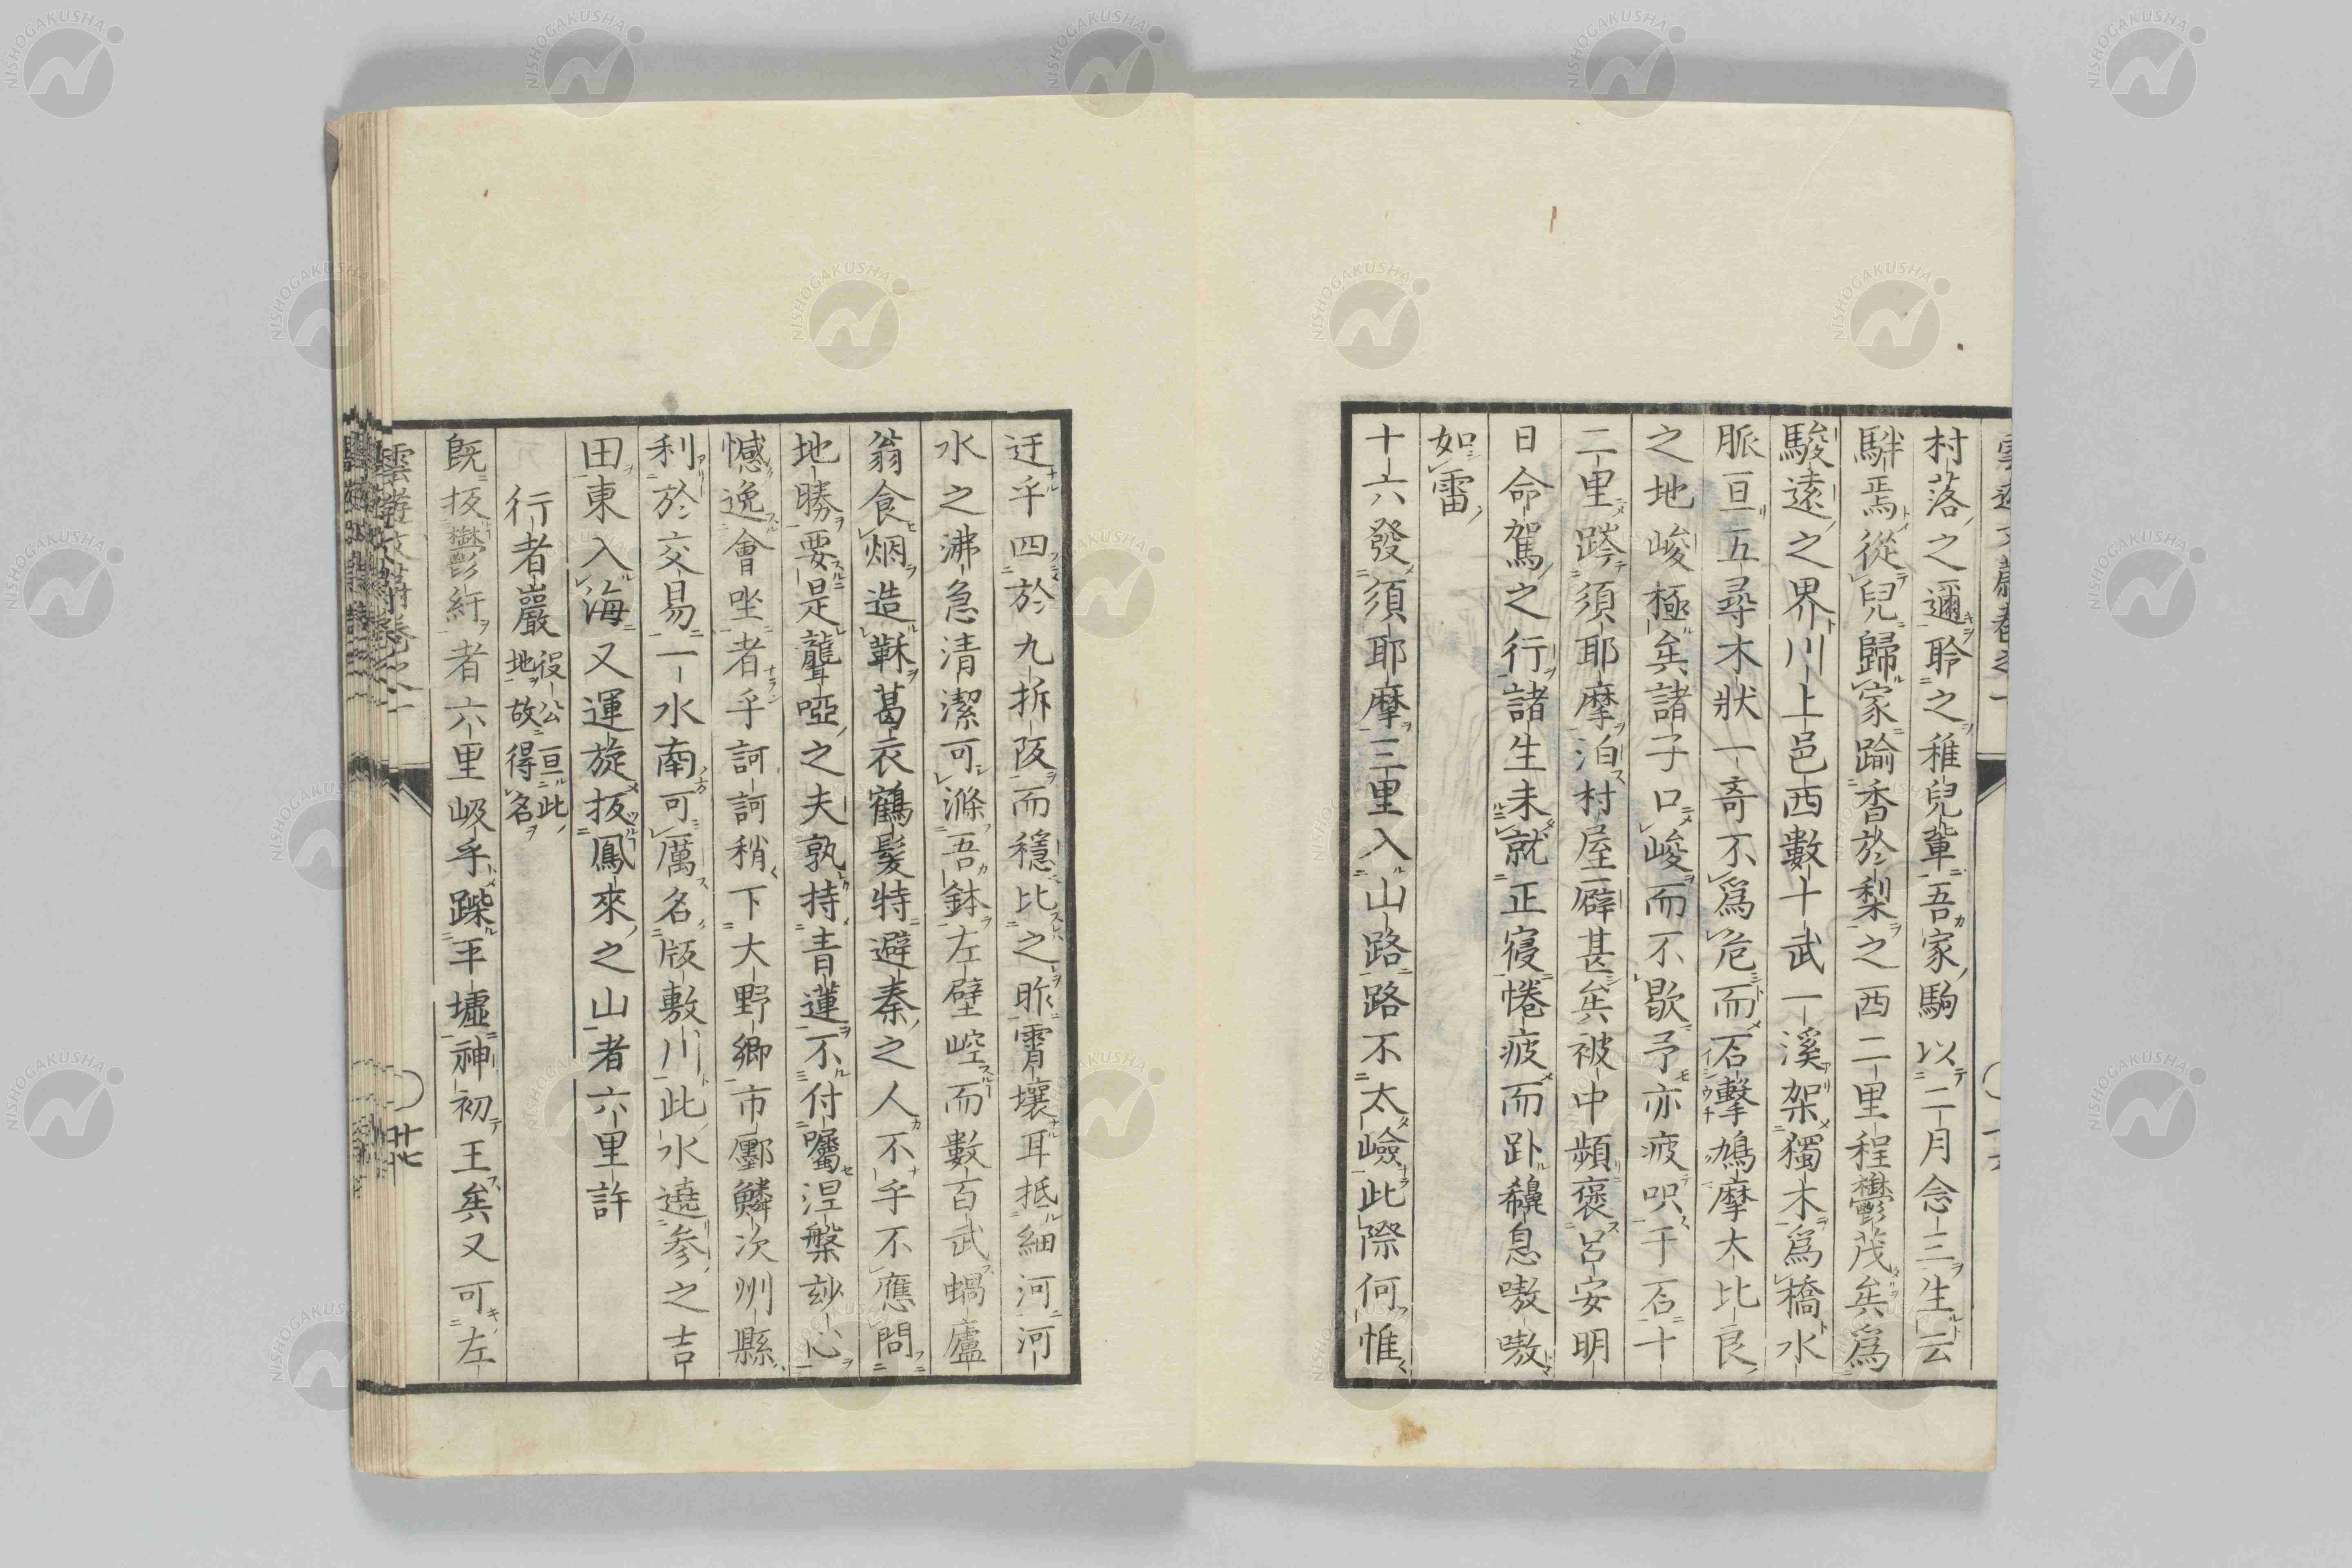 村落之邇聆之稚兒輩吾家駒以二月念三生云
駢焉從兒歸家踰香於梨之西二里程鬱茂矣爲
駿遠之界川上邑西數十武一溪架獨木爲橋水
脈亘五尋木狀一奇不爲危而石擊鳩摩太比良
之地峻極矣諸子口峻而不歇予亦疲呎于石十
二里跨須耶摩泊村屋二僻甚矣被中頻褒呂安明
日命駕之行諸生未就正寑惓疲而卧鼾息嗷嗷
如雷
十六發須耶摩三里入山路路不太嶮此際何惟
迂乎四於九拆阪而穩比之昨霄壤耳抵細河河
水之沸急清潔可滌吾鉢左壁崆而數百武蝸廬
翁食烟造龢葛衣鶴髮特避秦之人不乎不應問
地勝要是聾啞之夫孰持青蓮不付囑涅槃玅心
憾逸會坐者乎訶訶稍下大野鄉市鄽鱗次州縣
利於交易一水南可厲名版敷川此水遶參之吉
田東入海又運旋扳鳳來之山者六里許
行者巖
役公亘此
地故得名
既扳鬱紆者六里岋乎躁平墟神初王矣又可左
雲遊文蔚卷之一
廿七